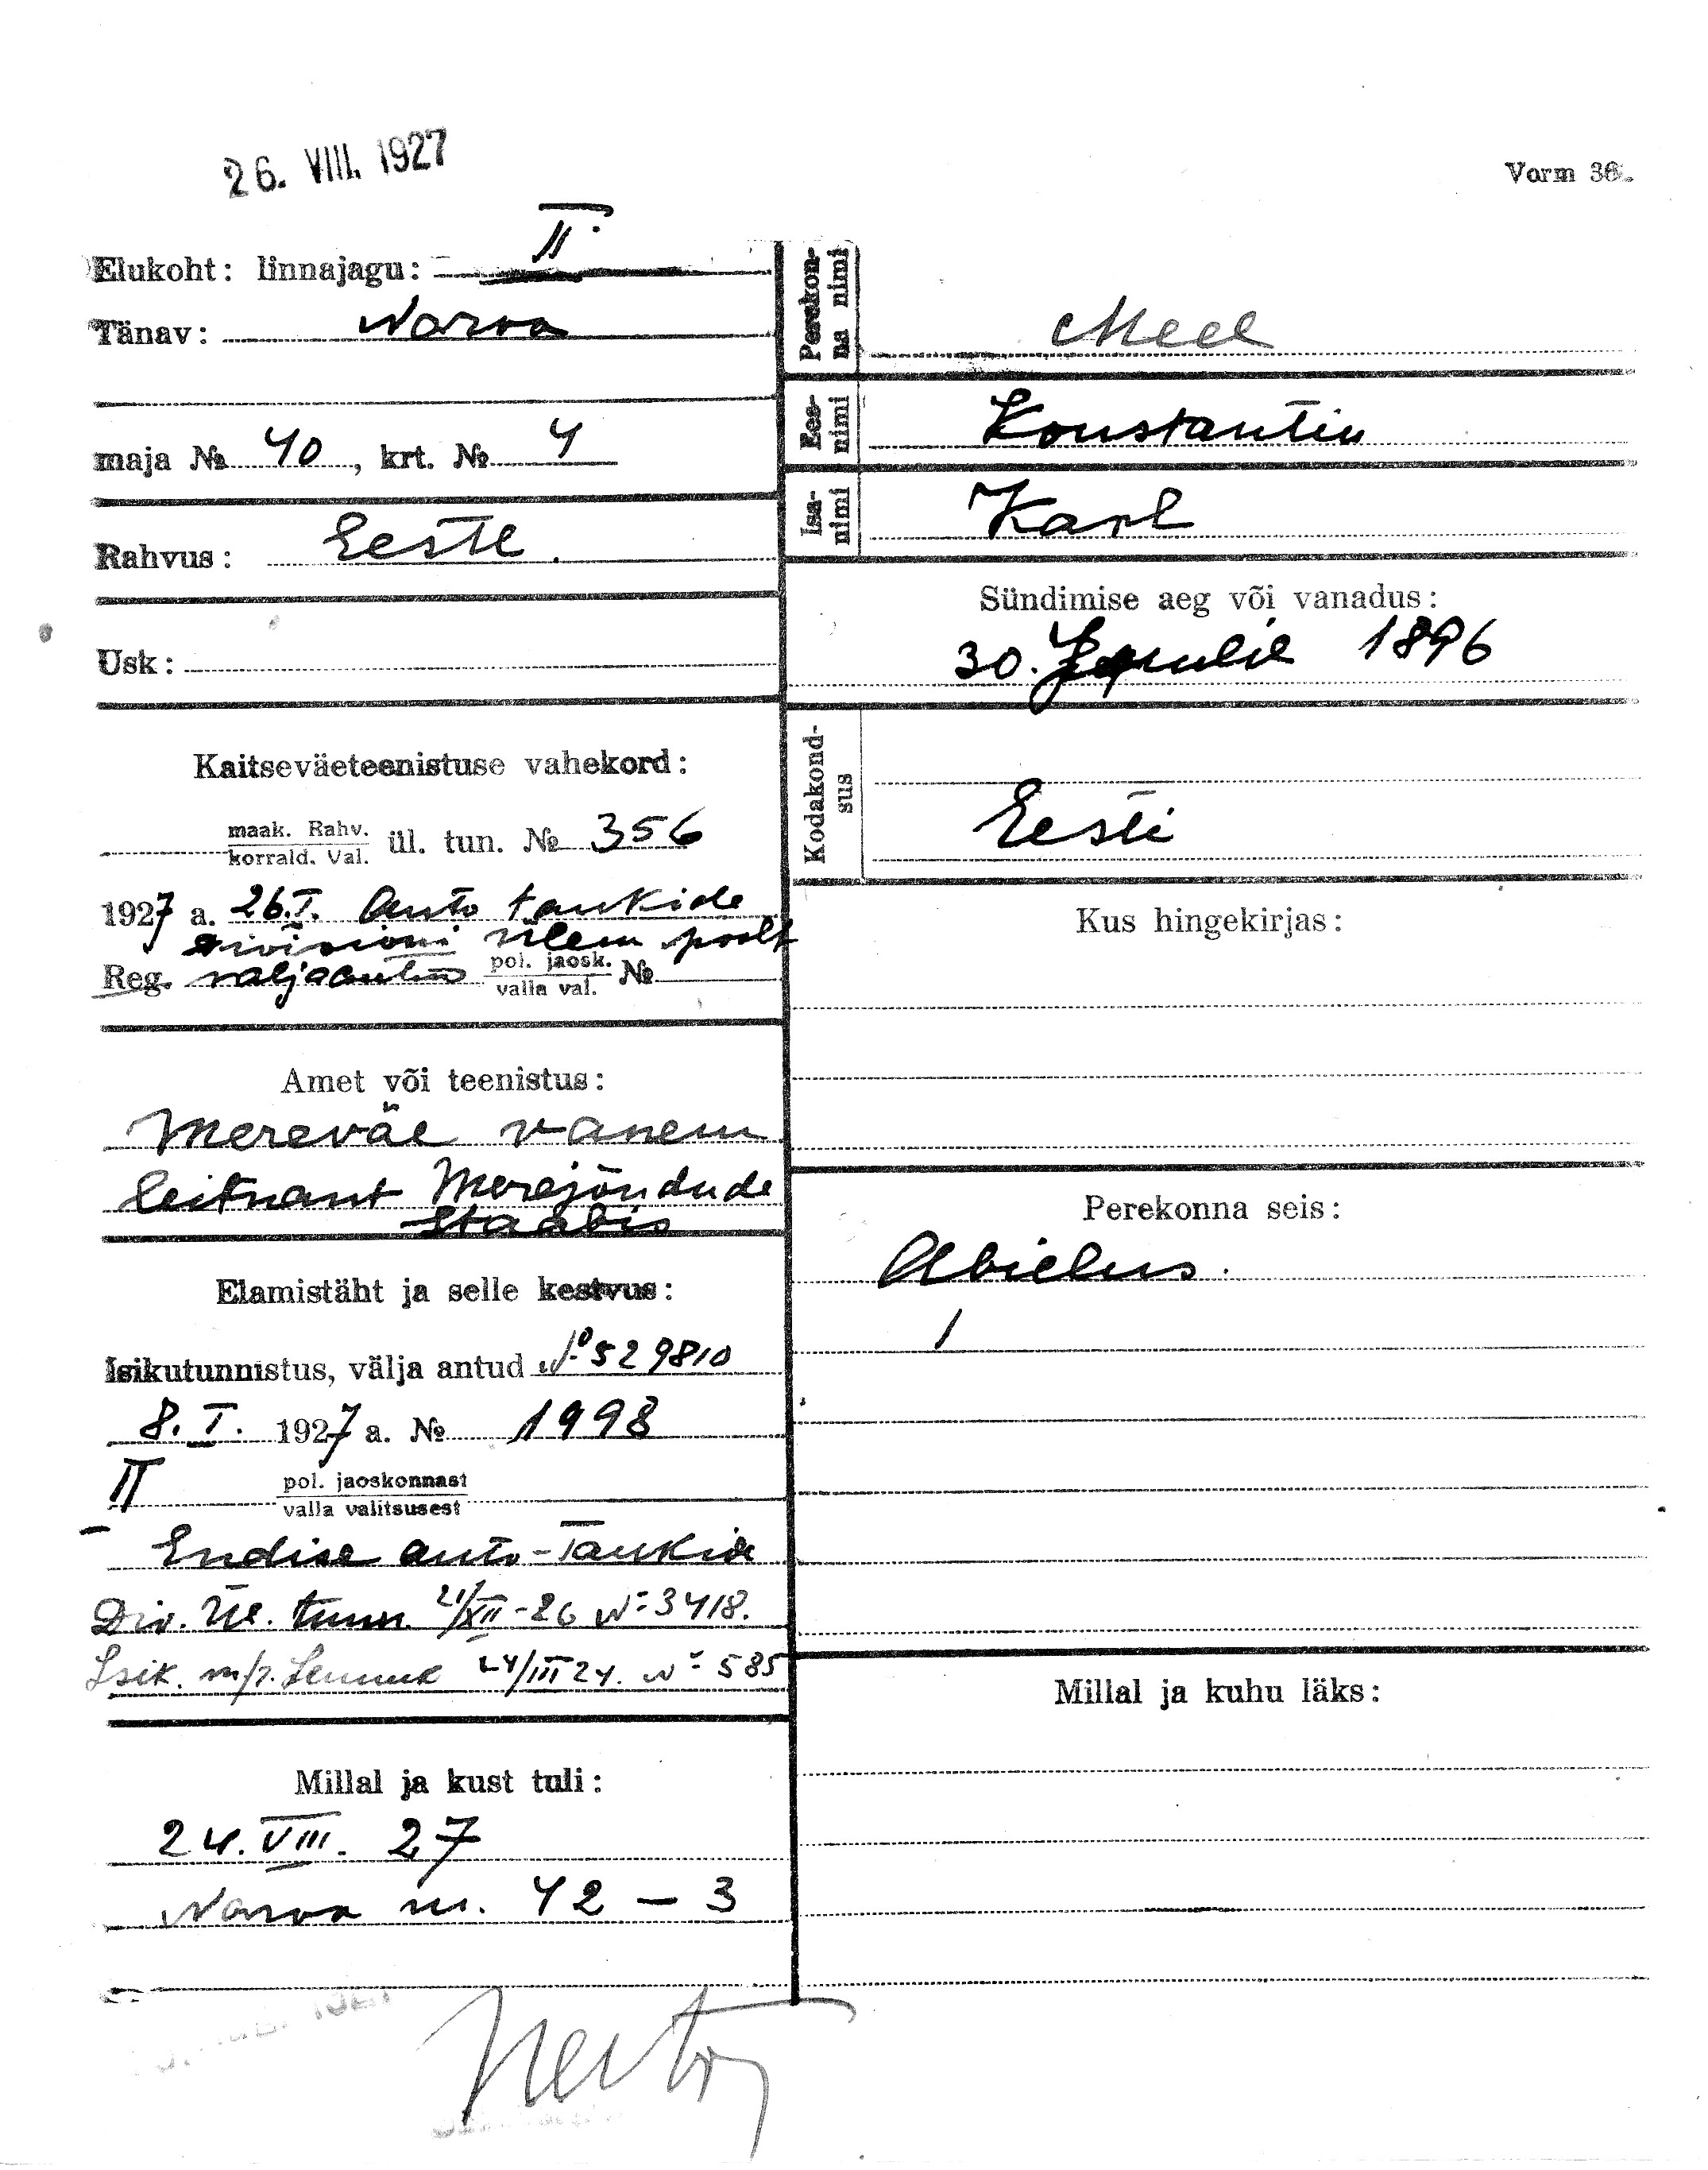 26. VIII. 1927
Vorm 36.
Elukoht: linnajagu: II
Tänav: Narva
maja № 40, krt. № 4
Rahvus: Eesti.
Usk:
Kaitseväeteenistuse vahekord:
maak. Rahv.
korrald. Val.
ül. tun. № 356
1927 a. 26.I. Auto tankide
divisioni ülem poolt
Reg. väljaantud pol. jaosk. №
valla val.
Amet või teenistus:
Mereväe vanem
leitnant Merejõudude
Staabis
Elamistäht ja selle kestvus:
Isikutunnistus, välja antud № 529810
8. I. 1927 a. № 1998
II pol. jaoskonnast
valla valitsusest
Endise auto-Tankide
Div. Ül. tunn. 21/XII-26 № 3418.
Isik. m/r. 24/III 24. № 585
Millal ja kust tuli:
24. VIII. 27
Narva m. 42 - 3
Perekon-
na nimi
Meel
Ees-
nimi
Konstantin
Isa-
nimi
Karl
Sündimise aeg või vanadus:
30. 1896
Kodakond-
sus
Eesti
Kus hingekirjas:
Perekonna seis:
Abielus.
1
Millal ja kuhu läks: